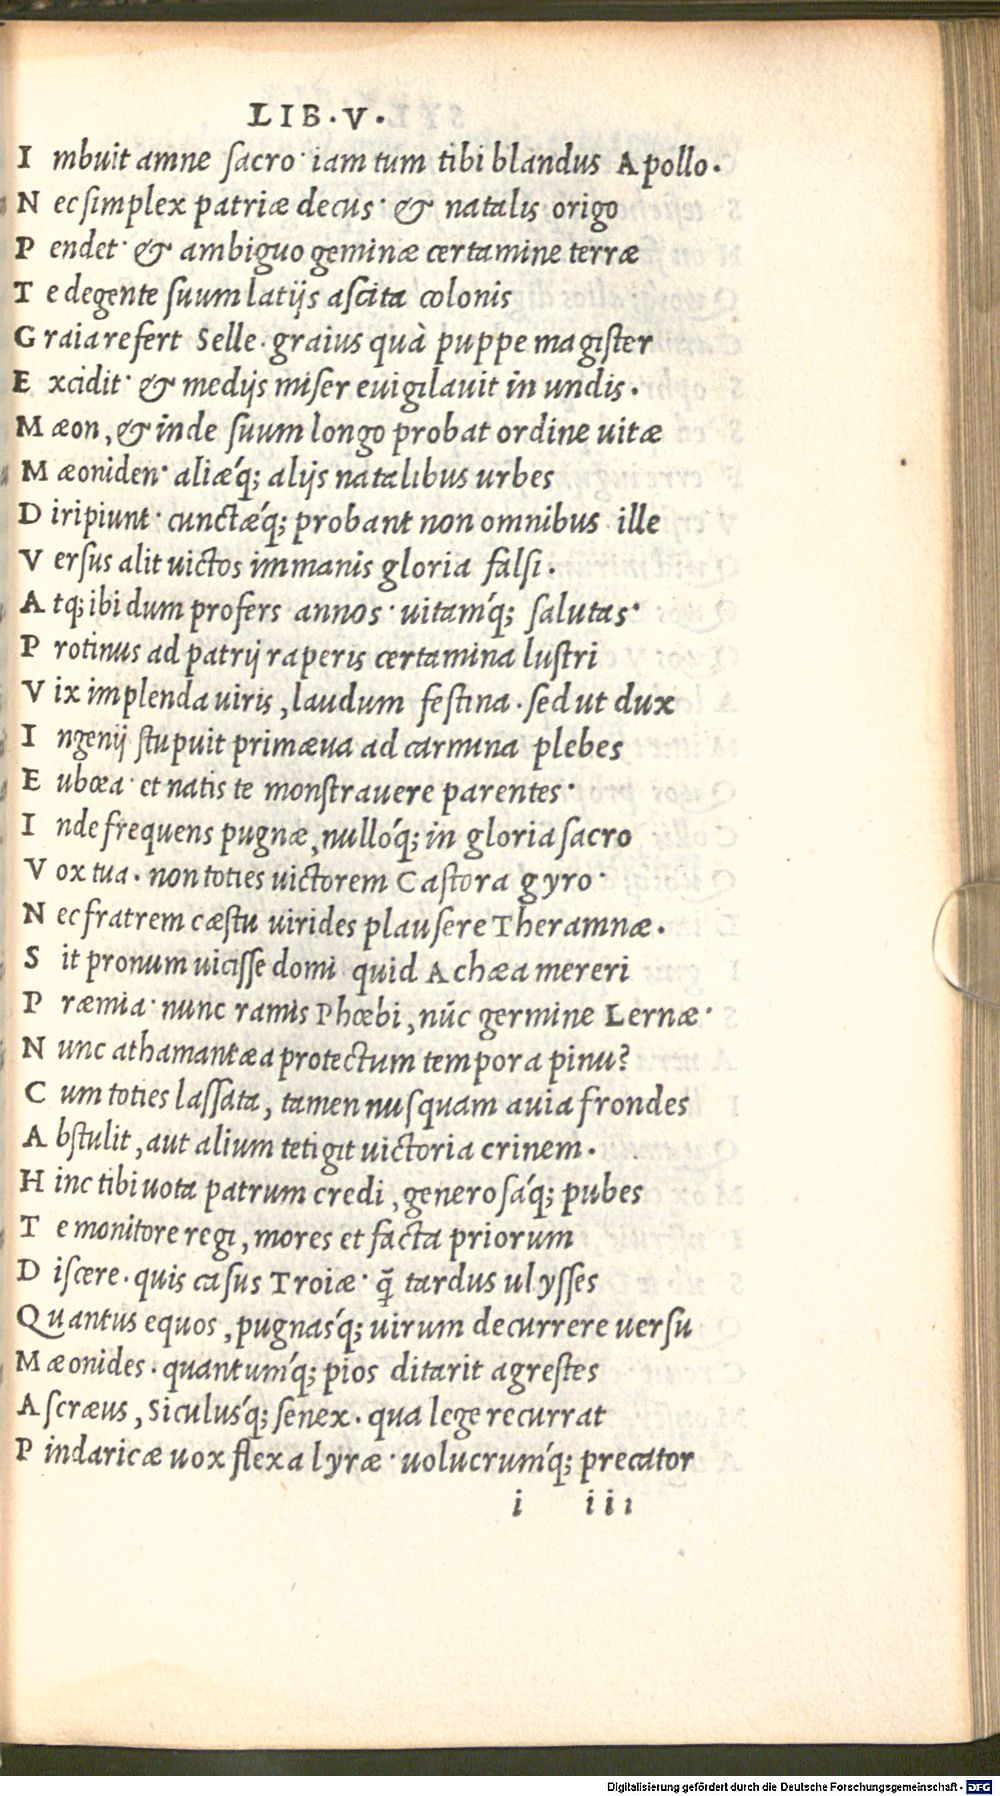 LIB.V.
I mbuit amne sacro· iam tum tibi blandus Apollo.
N ec simplex patriæ decus· & natalis origo
P endet· & ambiguo geminæ certamine terræ
T e degente suum latijs ascita colonis
G raia refert Selle. graius quà puppe magister
E xcidit· & medijs miser euigilauit in undis.
M æon, & inde suum longo probat ordine uitæ
M æoniden· aliæ´q; alijs natalibus urbes
D iripiunt· cunctæ´q; probant non omnibus ille
V ersus alit uictos immanis gloria falsi.
A tq; ibi dum profers annos· uitam´q; salutas·
P rotinus ad patrij raperis certamina lustri
V ix implenda uiris, laudum festina. sed ut dux
I ngenij stupuit primæua ad carmina plebes
E ubœa· et natis te monstrauere parentes·
I nde frequens pugnæ, nulló´q; in gloria sacro
V ox tua. non toties uictorem Castora gyro·
N ec fratrem cæstu uirides plausere Theramnæ.
S it pronum uicisse domi quid Achæa mereri
P ræmia· nunc ramis Phœbi, nūc germine Lernæ·
N unc athamantæa protectum tempora pinu?
C um toties lassata, tamen nusquam auia frondes
A bstulit, aut alium tetigit uictoria crinem.
H inc tibi uota patrum credi, generosá´q; pubes
T e monitore regi, mores et facta priorum
D iscere. quis casus Troiæ· q̃ tardus ulysses
Q uantus equos, pugnas´q; uirum decurrere uersu
M æonides. quantum´q; pios ditarit agrestes
A scræus, Siculus´q; senex. qua lege recurrat
P indaricæ uox flexa lyræ· uolucrum´q; precator
i iii
Digitalisierung gefördert durch die Deutsche Forschungsgemeinschaft - DFG